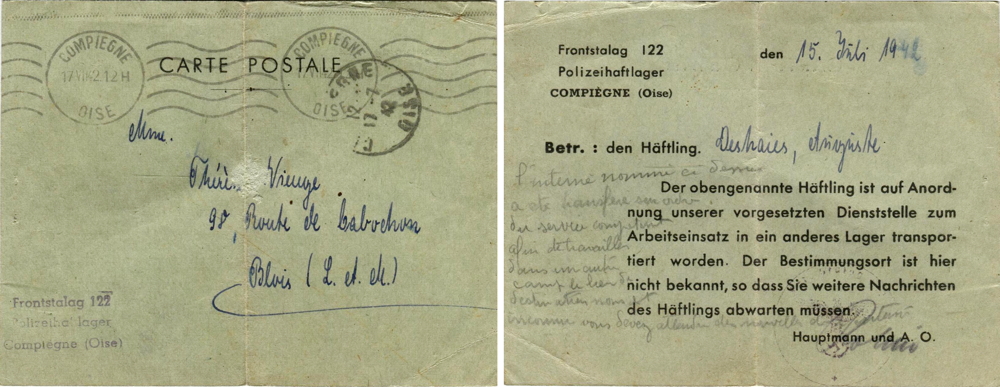 COMPIEGNE
17 VII 42 12 H
OISE
CARTE POSTALE
COMPIEGNE
OISE
OISE
12
17-7
42
Mme.
Vienge
98, Route de Cabochon
Blois (L. et. ch.)
Frontstalag 122
Polizeihaftlager
Compiègne (Oise)
Frontstalag 122
Polizeihaftlager
COMPIÈGNE (Oise)
den 15. Juli 1942
Betr. : den Häftling. Deshaies, Auguste
l'interné nommé ci dessus
a été transféré sur ordre
du service compétent
afin de travailler
dans un autre
camp le lieu de
destination
inconnu vous devez attendre des nouvelles
Der obengenannte Häftling ist auf Anord-
nung unserer vorgesetzten Dienststelle zum
Arbeitseinsatz in ein anderes Lager transpor-
tiert worden. Der Bestimmungsort ist hier
nicht bekannt, so dass Sie weitere Nachrichten
des Häftlings abwarten müssen.
Hauptmann und A. O.